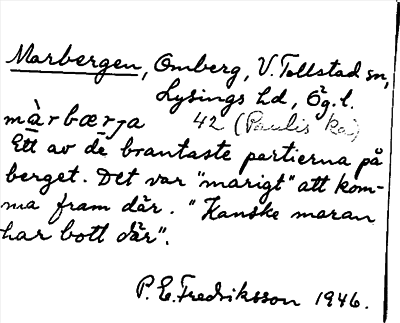 Marbergen, Omberg, V. Tollstad sn,
Lysings hd, Ög. l.
màrbærja 42 (Paulis ka)
Ett av de brantaste partierna på
berget. Det var "marigt" att kom-
ma fram där. "Kanske maran
har bott där".
P. E. Fredriksson 1946.